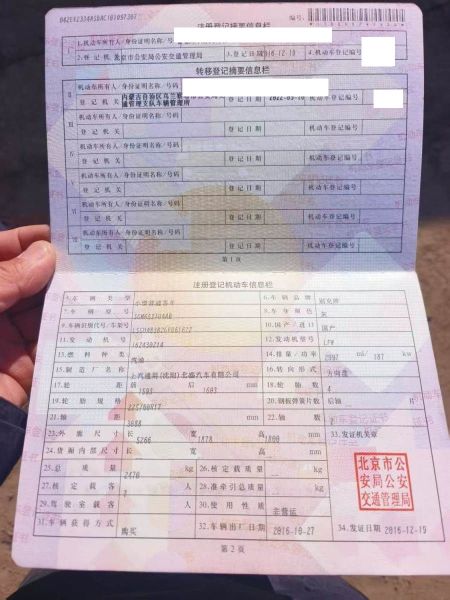 注册登记摘要信息栏
编号:
1.机动车所有人/身份证明名称/号码
2.登记机关 北京市公安局公安交通管理局 3.登记日期 2016-12-19 4.机动车登记编号
转移登记摘要信息栏
机动车所有人/身份证明名称/号码
登记机关 登记日期 2022-03-10 机动车登记编号
通管理支队车辆管理所
机动车所有人/身份证明名称/号码
登记机关 登记日期 机动车登记编号
机动车所有人/身份证明名称/号码
登记机关 登记日期 机动车登记编号
机动车所有人/身份证明名称/号码
登记机关 登记日期 机动车登记编号
机动车所有人/身份证明名称/号码
登记机关 登记日期 机动车登记编号
第1页
注册登记机动车信息栏
5.车辆类型 小型普通客车 6.车辆品牌 别克牌
7.车辆型号 8.车身颜色 灰
9.车辆识别代号/车架号 10.国产/进口 国产
11.发动机号 162430214 12.发动机型号 LFW
13.燃料种类 汽油 14.排量/功率 2997 ml/ 187 kw
15.制造厂名称 上汽通用(沈阳)北盛汽车有限公司 16.转向形式 方向盘
17.轮距 前 1593 后 1603 mm 18.轮胎数 4
19.轮胎规格 225/60R17 20.钢板弹簧片数 后轴 片
21.轴距 3088 mm 22.轴数 2
23.外廓尺寸 长 5266 宽 1878 高 1800 mm 33.发证机关章
24.货厢内部尺寸 长 宽 高 mm
25.总质量 2470 kg 26.核定载质量 kg
27.核定载客 7 人 28.准牵引总质量 kg
29.驾驶室载客 人 30.使用性质 非营运
31.车辆获得方式 购买 32.车辆出厂日期 2016-10-27 34.发证日期 2016-12-19
北京市公
安局公安
交通管理局
第2页